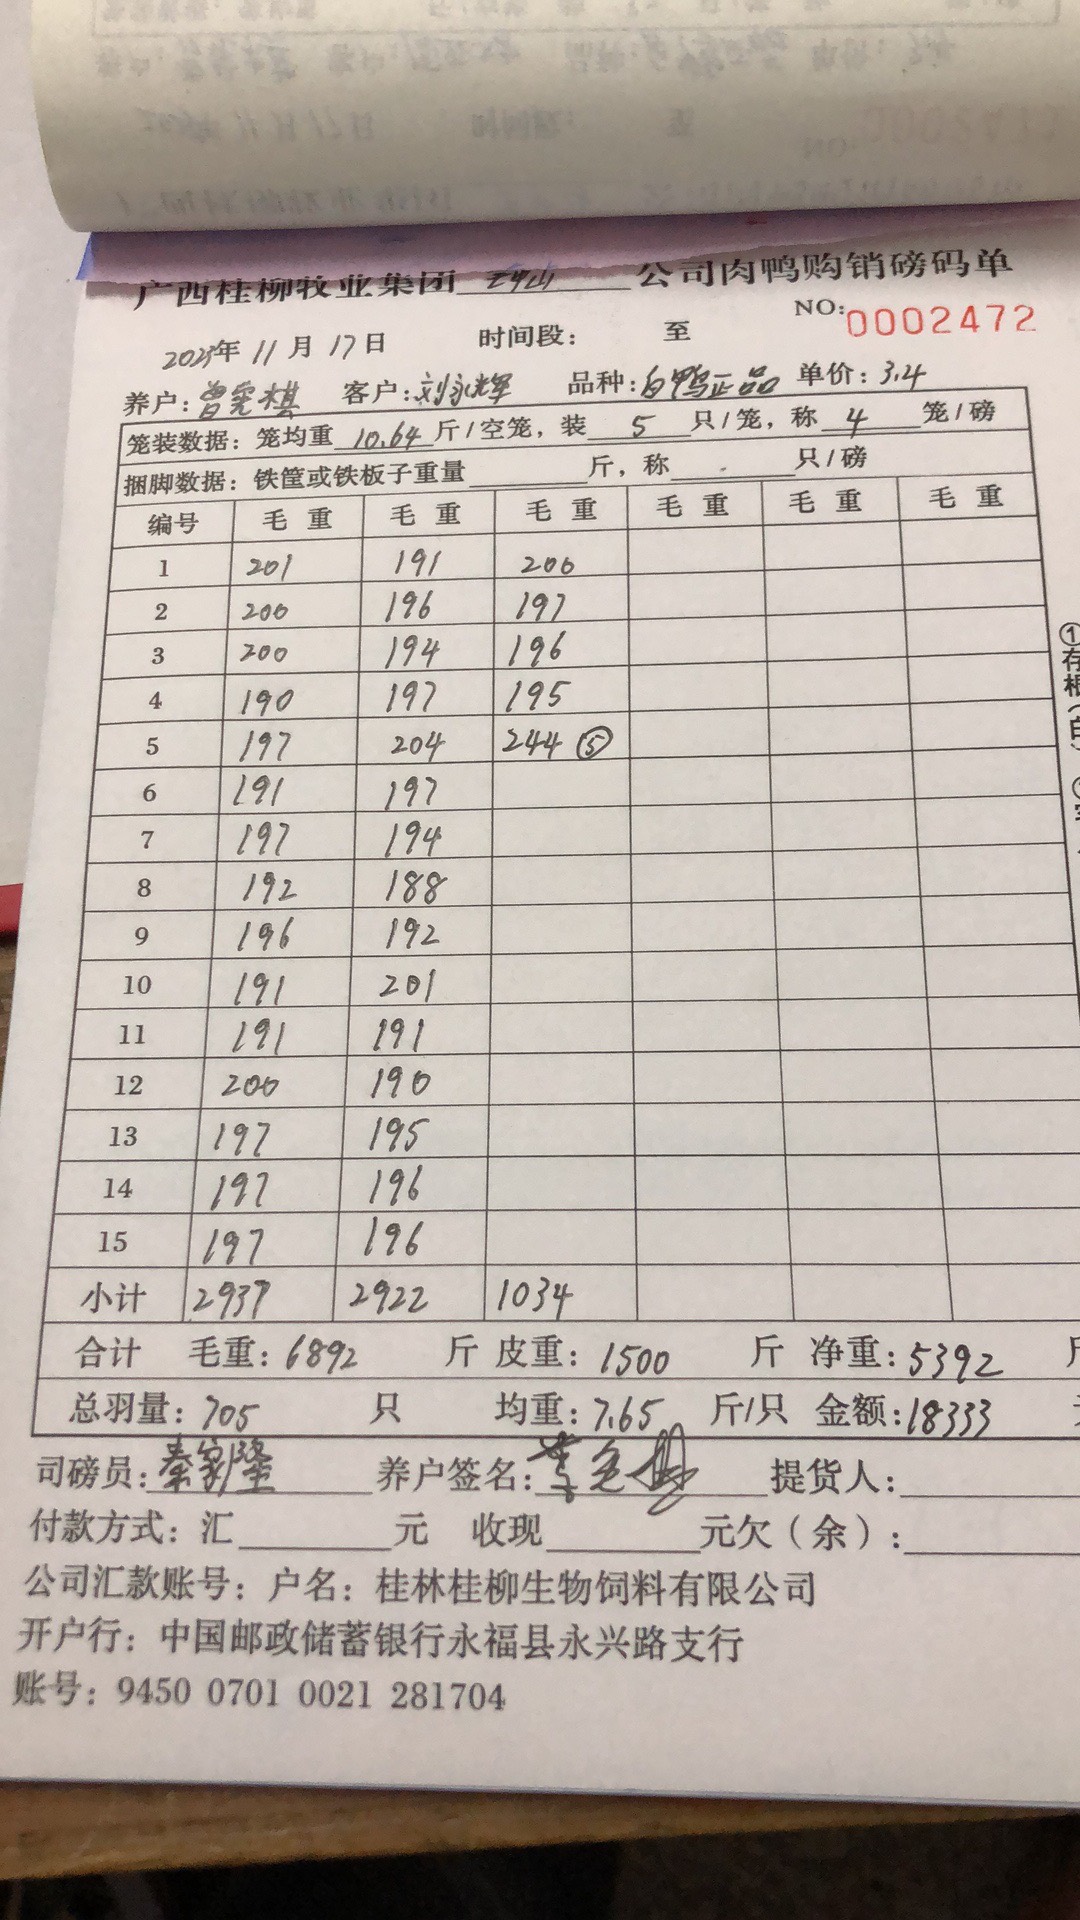 广西桂柳牧业集团 公司肉鸭购销磅码单
NO:0002472
2023年 11月 17日 时间段: 至
养户:曾宪棋 客户:刘永辉 品种:白鸭正品 单价:3.4
笼装数据:笼均重 10.64 斤/空笼,装 5 只/笼,称 4 笼/磅
捆脚数据:铁筐或铁板子重量 斤,称 只/磅
编号 毛重 毛重 毛重 毛重 毛重 毛重
1 201 191 200
2 200 196 197
3 200 194 196
4 190 197 195
5 197 204 244 ⑤
6 191 197
7 197 194
8 192 188
9 196 192
10 191 201
11 191 191
12 200 190
13 197 195
14 197 196
15 197 196
小计 2937 2922 1034
合计 毛重:6892 斤 皮重:1500 斤 净重:5392 斤
总羽量:705 只 均重:7.65 斤/只 金额:18333
司磅员:秦家隆 养户签名: 提货人:
付款方式:汇 元 收现 元欠(余):
公司汇款账号:户名:桂林桂柳生物饲料有限公司
开户行:中国邮政储蓄银行永福县永兴路支行
账号:9450 0701 0021 281704
①存根(白)